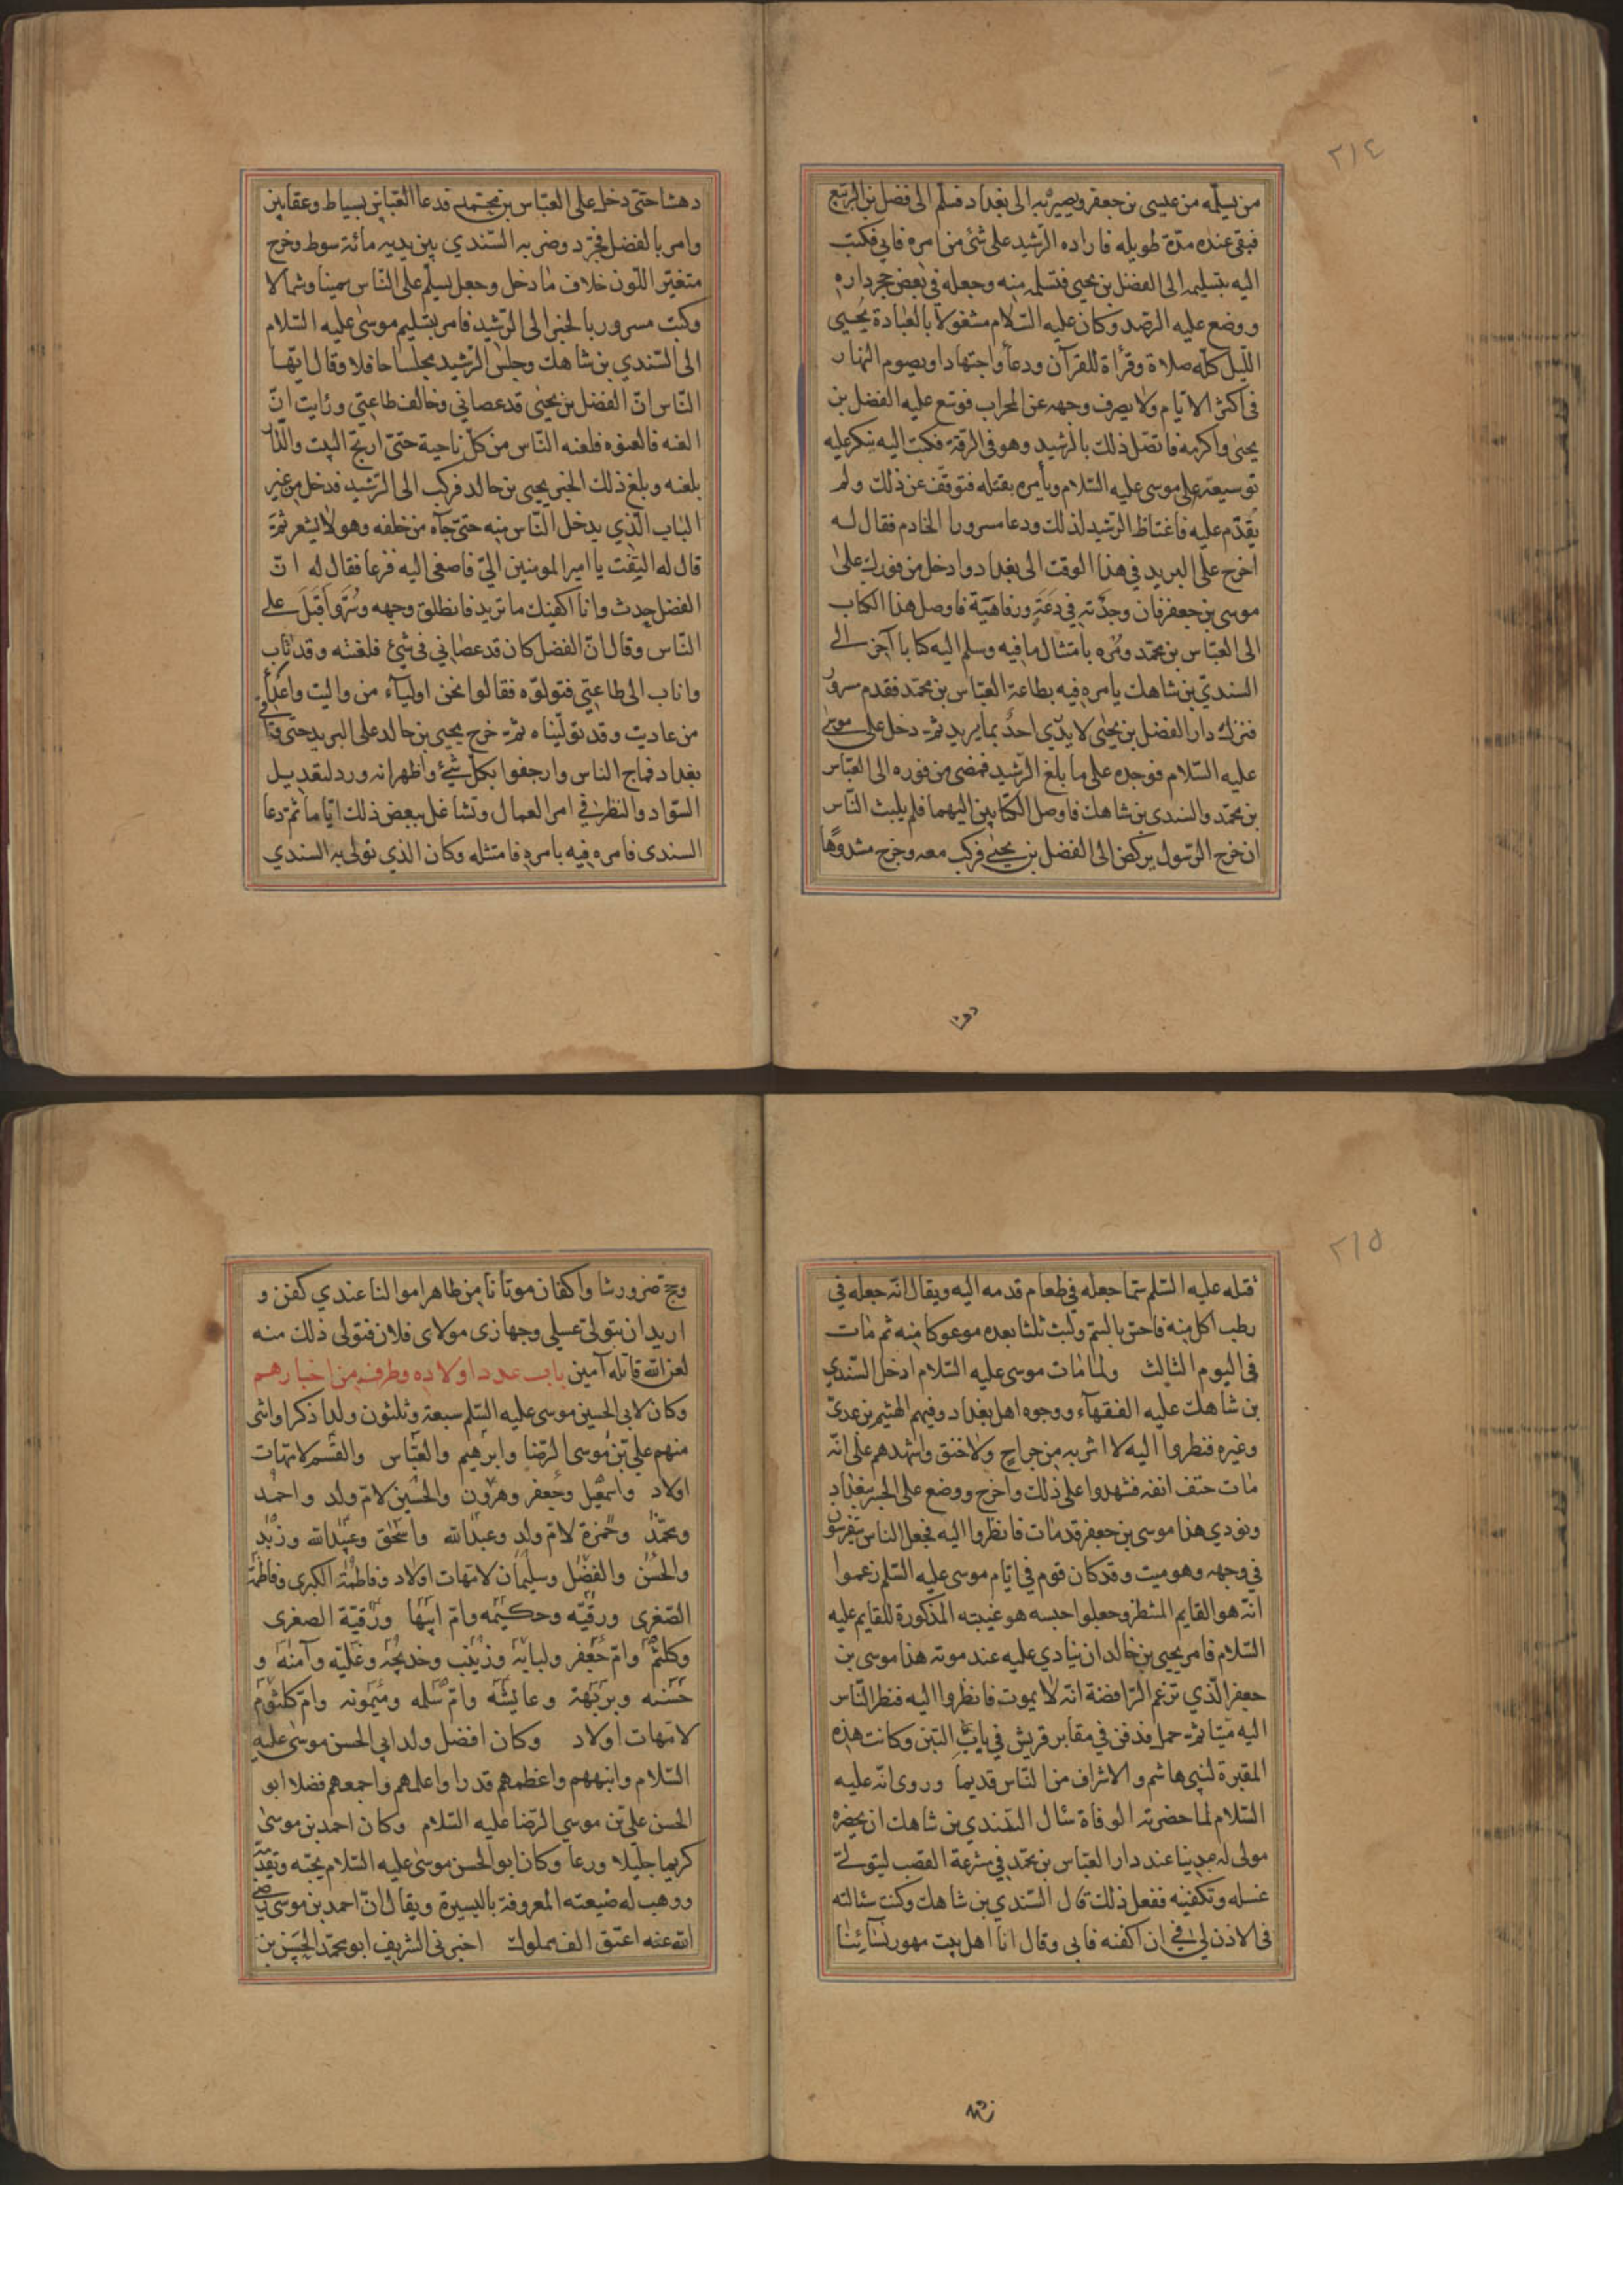 ٢١٤
من يسلمه من عيسى بن جعفر ويصيربه الى بغداد فسلم الى فضل بن الربيع
فبقى عنده مدّة طويله فاراده الرّشيد على شئ من امره فابى فكتب
اليه بتسليمه الى الفضل بن يحيى فتسلمه منه وجعله في بعض حجر داره
ووضع عليه الرصد وكان عليه السّلام مشغولاً بالعبادة يُحيى
اللّيل كلّه صلاة وقرأة للقرآن ودعأ واجتهادا ويصوم النهار
فى اكثر الايّام ولا يصرف وجهه عن المحراب فوسّع عليه الفضل بن
يحيى واكرمه فاتصل ذلك بالرشيد وهو فى الرقة فكتب اليه ينكر عليه
توسيعته على موسى عليه السّلام ويأمره بقتله فتوقّف عن ذلك ولم
يقدّم عليه فاغتاظ الرّشيد لذلك ودعا مسرورا الخادم فقال له
اخرج على البريد في هذا الوقت الى بغداد وادخل من فورك على
موسى بن جعفر فان وجدته في دَعَةٍ ورفاهيّة فاوصل هذا الكتاب
الى العبّاس بن محمّد ومُره بامتثال ما فيه وسلم اليه كتابا آخر الى
السندىّ بن شاهك يامره فيه بطاعة العبّاس بن محمّد فقدم مسرور
فنزل دار الفضل بن يحيى لا يدرى احدٌ بما يريد ثمّ دخل على موسى
عليه السّلام فوجده على ما بلغ الرّشيد فمضى من فوره الى العبّاس
بن محمّد والسّندى بن شاهك فاوصل الكتابين اليهما فلم يلبث النّاس
ان خرج الرّسول يركض الى الفضل بن يحيى فركب معه وخرج مشدوهًا
دهشا
دهشا حتى دخل على العبّاس بن محمّد فدعا العبّاس بسياط وعقابين
وامر بالفضل فجرّد وضربه السّندي بين يديه مائة سوط وخرج
متغيّر اللّون خلاف ما دخل وجعل يسلّم على النّاس يمينا وشمالا
وكتب مسرور بالخبر الى الرّشيد فامر بتسليم موسى عليه السّلام
الى السّندي بن شاهك وجلس الرّشيد مجلسا حافلا وقال ايّها
النّاس انّ الفضل بن يحيى قد عصاني وخالف طاعتي ورايت انّ
العنه فالعنوه فلعنه النّاس من كلّ ناحية حتىّ ارتجّ البيت والدّار
بلعنه وبلغ ذلك الخبر يحيى بن خالد فركب الى الرّشيد فدخل من غير
الباب الّذي يدخل النّاس منه حتىّ جآه من خلفه وهو لا يشعر ثمّ
قال له التفت يا امير المومنين الىّ فاصغى اليه فزعا فقال له انّ
الفضل حدث وانا اكفيك ما تريد فانطلق وجهه وسُرّ واقبَلَ على
النّاس وقال انّ الفضل كان قد عصاني في شئ فلعنته وقد تاب
واناب الى طاعتي فتولوّه فقالوا نحن اوليآء من واليت واعدآء
من عاديت وقد تولّيناه ثمّ خرج يحيى بن خالد على البريد حتى وافى
بغداد فماج الناس وارجفوا بكلّ شئ واظهر انه ورد لتعديل
السّواد والنظر في امر العمال وتشاغل ببعض ذلك ايّاما ثمّ دعا
السندى فامره فيه بامره فامتثله وكان الذي تولى به السندي
٢١٥
قتله عليه السّلم سمّا جعله في طعام قدمه اليه ويقال انّه جعله في
رطب اكل منه فاحس بالسّم ولبث ثلثا بعده موعوكا منه ثم مات
فى اليوم الثالث ولما مات موسى عليه السّلام ادخل السّندي
بن شاهك عليه الفقهآء ووجوه اهل بغداد وفيهم الهيثم بن عدىّ
وغيره فنظروا اليه لا اثر به من جراح ولا خنق واشهدهم على انّه
مات حتف انفه فشهدوا على ذلك واخرج ووضع على الجسر ببغداد
ونودي هذا موسى بن جعفر قد مات فانظروا اليه فجعل الناس يتفرسون
في وجهه وهو ميت وقد كان قوم في ايّام موسى عليه السّلم زعموا
انّه هو القايم المنتظر وجعلوا حبسه هو غيبته المذكورة للقايم عليه
السّلام فامر يحيى بن خالد ان ينادي عليه عند موته هذا موسى بن
جعفر الّذي تزعم الرّافضة انّه لا يموت فانظروا اليه فنظر النّاس
اليه ميّتا ثمّ حمل فدفن في مقابر قريش في باب التبن وكانت هذه
المقبرة لبنى هاشم والاشراف من النّاس قديما وروى انّه عليه
السّلام لما حضرته الوفاة سال السّندي بن شاهك ان يحضره
مولى له مدينيا عند دار العبّاس بن محمّد في مشرعة القصب ليتولّى
غسله وتكفينه ففعل ذلك قال السّندي بن شاهك وكنت سئالته
فى الاذن لي في ان اكفنه فابى وقال انا اهل بيت مهور نسآئنا
وحج
وحج ضرورتنا واكفان موتانا من طاهر اموالنا عندي كفن و
اريد ان يتولى غسلي وجهازى مولاى فلان فتولى ذلك منه
لعن الله قاتله آمين باب عدد اولاده وطرف من اخبارهم
وكان لابى الحسين موسى عليه السّلم سبعة وثلثون ولدا ذكرا وانثى
منهم علي بن موسى الرّضا وابرهيم والعبّاس والقسم لامّهات
اولاد واسمعيل وجعفر وهرون والحسين لامّ ولد واحمد
ومحمّد وحمزة لامّ ولد وعبد الله واسحق وعبيد الله وزيد
والحسن والفضل وسليمان لامّهات اولاد وفاطمة الكبرى وفاطمة
الصّغرى ورقيّه وحكيمه وامّ ابيها ورقيّة الصغرى
وكلثم وامّ جعفر ولبابة وزينب وخديجة وعليّه وآمنه و
حسنه وبريهة وعايشة وامّ سلمه وميمونه وامّ كلثوم
لامّهات اولاد وكان افضل ولد ابى الحسن موسى عليه
السّلام وانبههم واعظمهم قدرا واعلمهم واجمعهم فضلا ابو
الحسن علي بن موسي الرّضا عليه السّلام وكان احمد بن موسى
كريما جليلا ورعا وكان ابو الحسن موسى عليه السّلام يحبّه ويقدّمه
ووهب له ضيعته المعروفة باليسيرة ويقال انّ احمد بن موسى رضى
الله عنه اعتق الف مملوك اخبرنى الشريف ابو محمّد الحسن بن